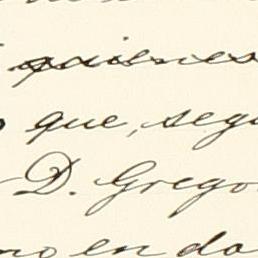 quienes
que, segu
D. Grego
en do